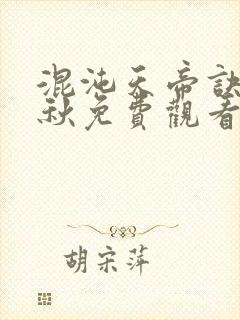 混沌天帝訣
秋免費觀看
胡宗萍